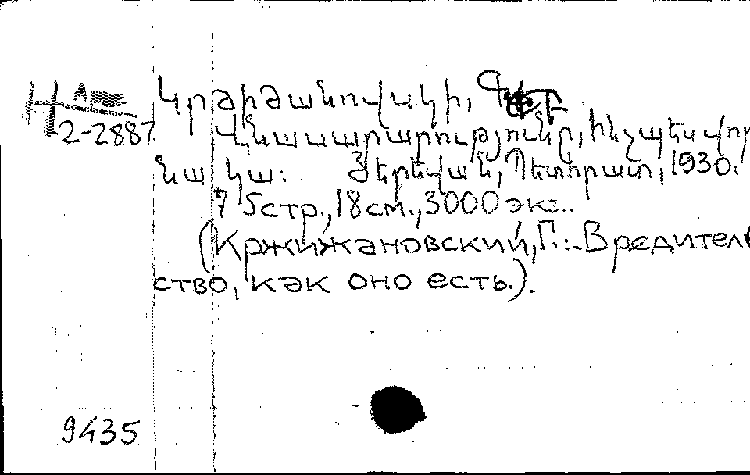 2-2887
Կրժիժանովսկի, Գ.
Վնասարարությունը, ինչպես վոր
նա կա: Յերևան, Պետհրատ, 1930.
75 стр., 18 см., 3000 экз..
(Кржижановский, Г.:.Вредитель
ство, как оно есть.).
9435